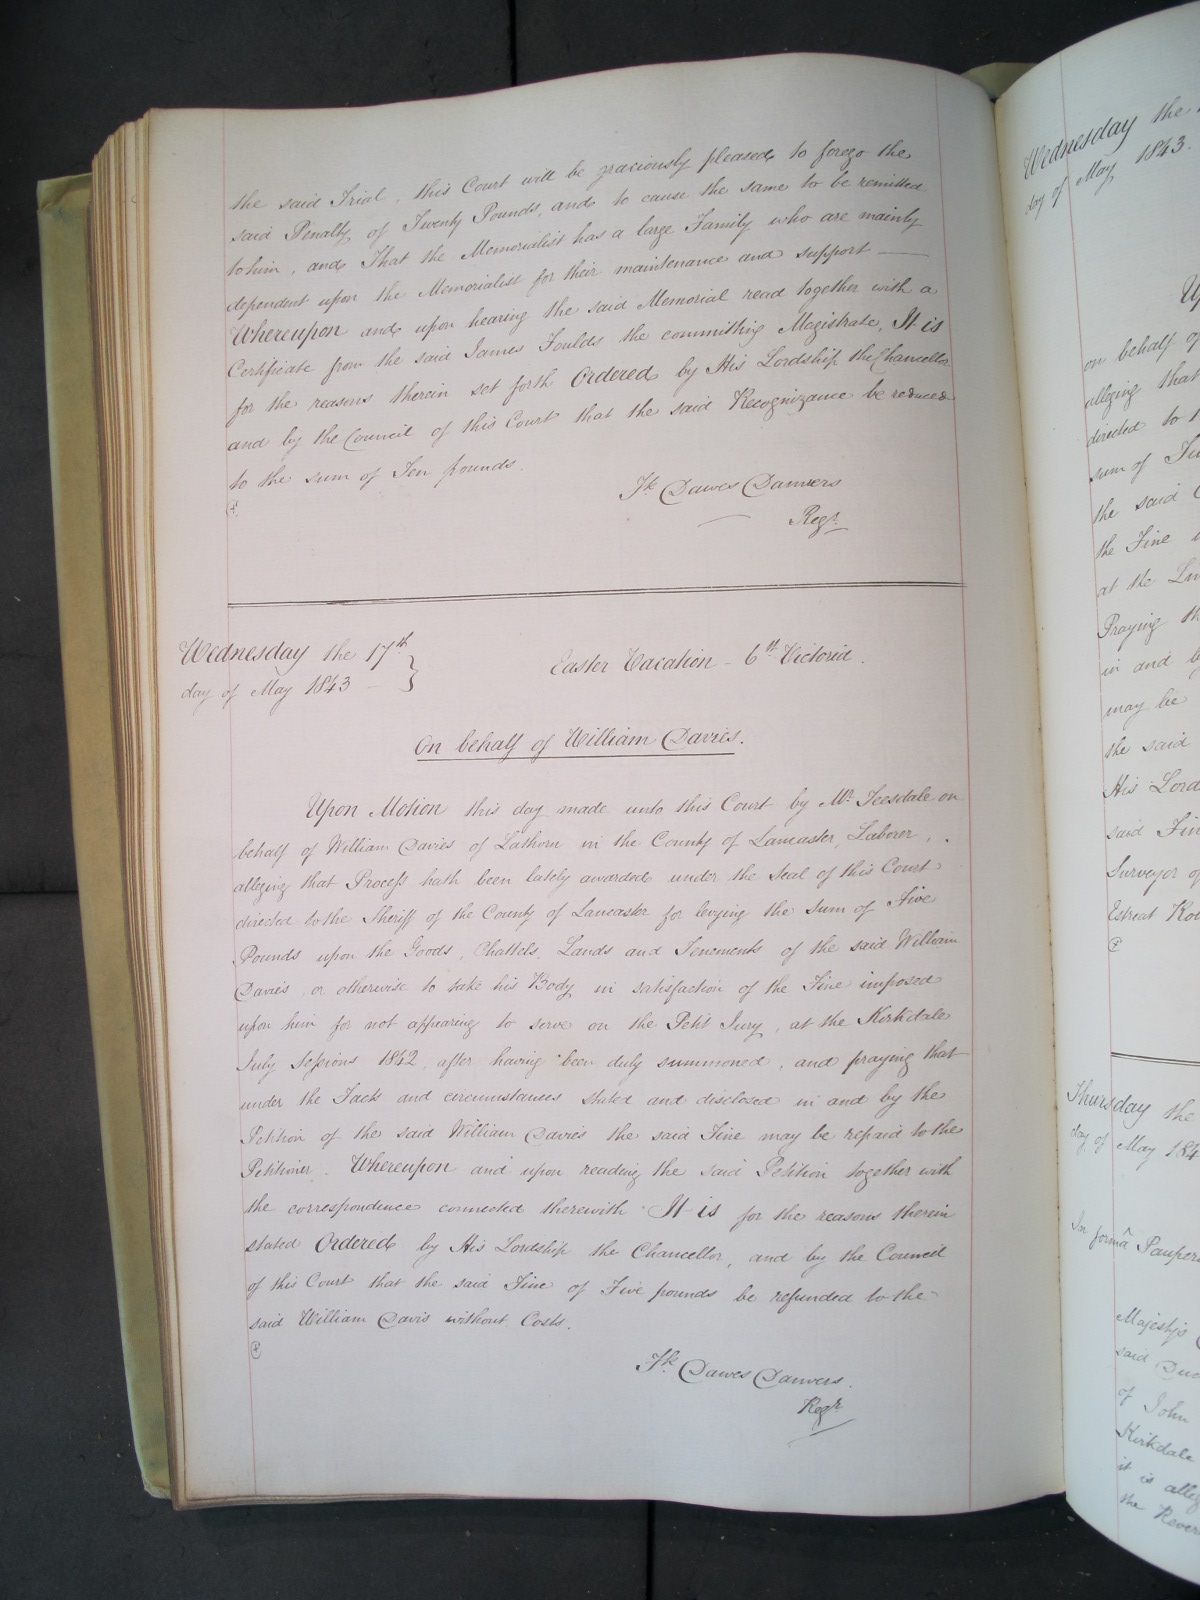 the said Trial, this Court will be graciously pleased to forego the
said Penalty of Twenty Pounds, and to cause the same to be remitted
to him, and That the Memorialist has a large Family who are mainly
dependent upon the Memorialist for their maintenance and support —
Whereupon and upon hearing the said Memorial read together with a
Certificate from the said James Foulds the committing Magistrate, It is
for the reasons therein set forth Ordered by His Lordship the Chancellor
and by the Council of this Court that the said Recognizance be reduced
to the sum of Ten pounds.
Fk Dawes Danvers
Regr.
Wednesday the 17th
day of May 1843 –
Easter Vacation – 6th Victoria.
On behalf of William Davies.
Upon Motion this day made unto this Court by Mr. Teesdale on
behalf of William Davies of Lathom in the County of Lancaster, Laborer,
alleging that Process hath been lately awarded under the Seal of this Court
directed to the Sheriff of the County of Lancaster for levying the Sum of Five
Pounds upon the Goods, Chattels, Lands and Tenements of the said William
Davies or otherwise to take his Body in satisfaction of the Fine imposed
upon him for not appearing to serve on the Petit Jury, at the Kirkdale
July Sessions 1842, after having been duly summoned, and praying that
under the Facts and circumstances stated and disclosed in and by the
Petition of the said William Davies the said Fine may be repaid to the
Petitioner. Whereupon and upon reading the said Petition together with
the correspondence connected therewith It is for the reasons therein
stated Ordered by His Lordship the Chancellor, and by the Council
of this Court that the said Fine of Five pounds be refunded to the
said William Davis without Costs.
Fk. Dawes Danvers.
Regr
Wednesday the
day of May 1843.
on behalf of
alleging that
directed to
sum of
the said
the Fine
at the
Praying
in and
may be
the said
His Lord
said Fin
Surveyor of
Estreat
Thursday the
day of May 184
In formâ Pauperis
Majesty's
said
of John
Kirkdale
it is alleg
the Rever